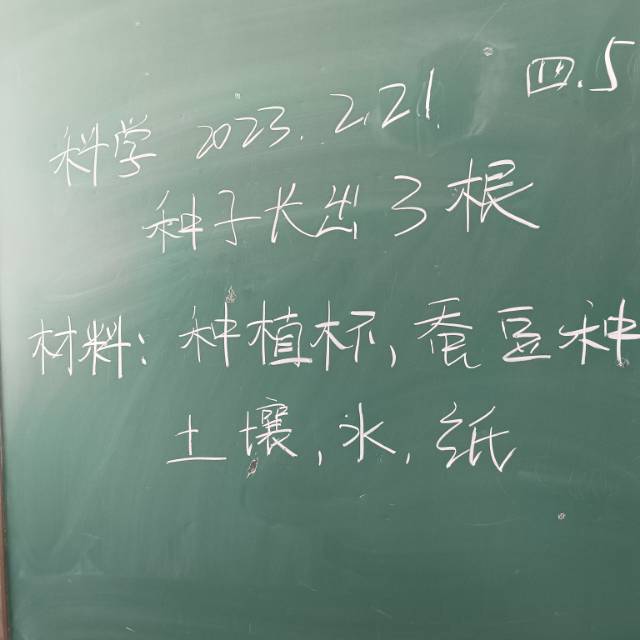 四.5
科学 2023.2.21.
种子长出了根
材料：种植杯，蚕豆种
土壤，水，纸